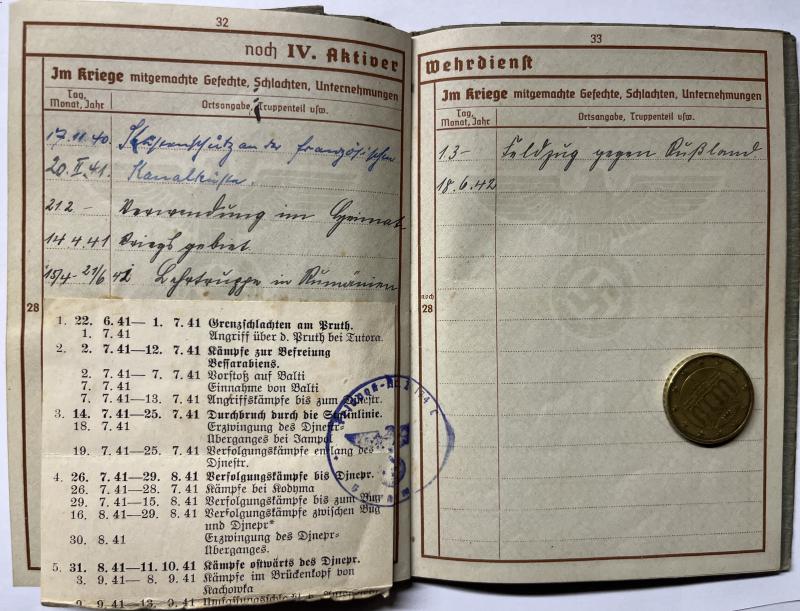 32
noch IV. Aktiver
Im Kriege mitgemachte Gefechte, Schlachten, Unternehmungen
Tag, Monat, Jahr
Ortsangabe, Truppenteil usw.
17.11.40.
Küstenschutz an der französischen
20.II.41.
Kanalküste.
21 2 –
Verwendung im Heimat-
14 4.41
kriegsgebiet
15/4 – 21/6 41 Lehrtruppe in Rumänien
28
1. 22. 6.41— 1. 7.41 Grenzschlachten am Pruth.
1. 7.41 Angriff über d. Pruth bei Tutora.
2. 2. 7.41—12. 7.41 Kämpfe zur Befreiung
Bessarabiens.
2. 7.41— 7. 7.41 Vorstoß auf Balti
7. 7.41 Einnahme von Balti
7. 7.41—13. 7.41 Angriffskämpfe bis zum Dnjestr.
3. 14. 7.41—25. 7.41 Durchbruch durch die Stalinlinie.
18. 7.41 Erzwingung des Dnjestr-
Überganges bei Jampol
19. 7.41—25. 7.41 Verfolgungskämpfe entlang des
Dnjestr.
4. 26. 7.41—29. 8.41 Verfolgungskämpfe bis Dnjepr.
26. 7.41—28. 7.41 Kämpfe bei Kodyma
29. 7.41—15. 8.41 Verfolgungskämpfe bis zum Bug
16. 8.41—29. 8.41 Verfolgungskämpfe zwischen Bug
und Dnjepr*
30. 8.41 Erzwingung des Dnjepr-
Überganges.
5. 31. 8.41—11. 10.41 Kämpfe ostwärts des Dnjepr.
3. 9.41— 8. 9.41 Kämpfe im Brückenkopf von
Kachowka
9. 9.41—13. 9.41
33
Wehrdienst
Im Kriege mitgemachte Gefechte, Schlachten, Unternehmungen
Tag, Monat, Jahr
Ortsangabe, Truppenteil usw.
1.3–
Feldzug gegen Rußland
18.6.42
noch
28